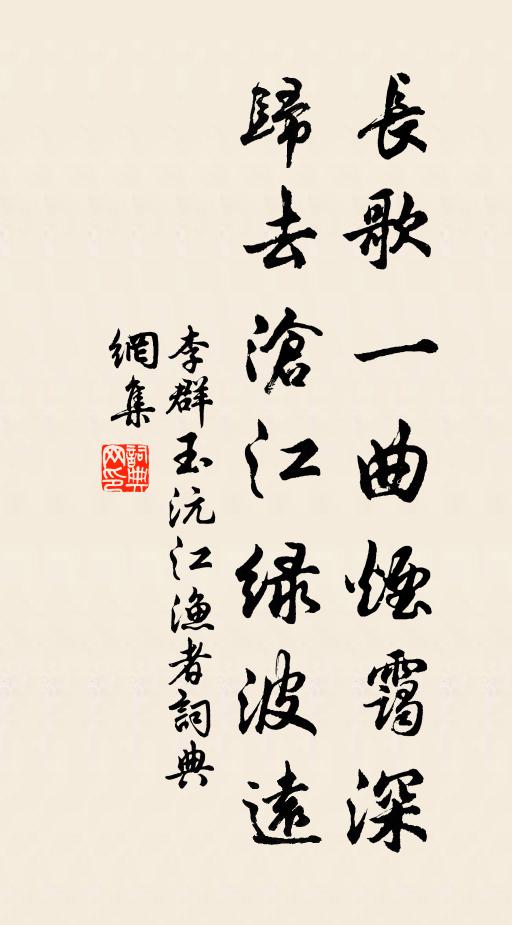 長歌一曲煙靄深
歸去滄江綠波遠
李群玉沅江漁者詞典
網集
詞典網印